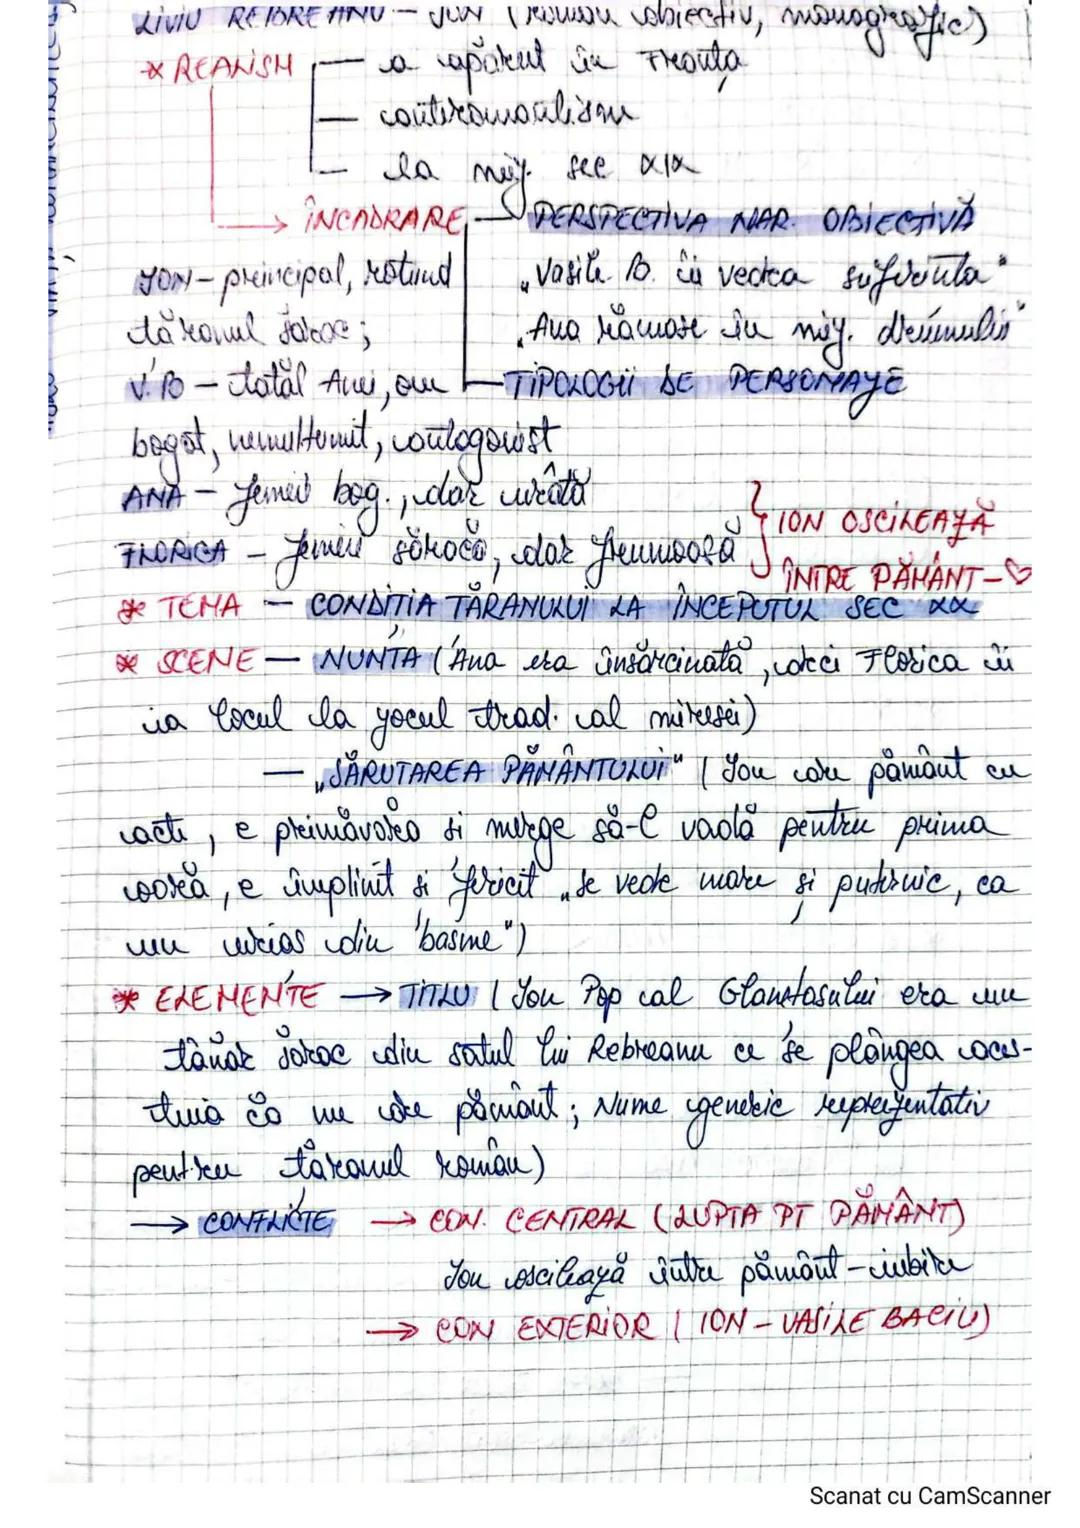 LIVIU REBREANU - ION (roman obiectiv, monografic)
* REALISM
— a apărut în Franța
— antiromantism
— la mij. sec XIX
→ ÎNCADRARE — PERSPECTIVA NAR. OBIECTIVĂ
„Vasile B. îi vedea suferința"
„Ana rămase în mij. drumului"
— TIPOLOGII DE PERSONAJE
ION - principal, rotund
țăranul sărac;
V.B - tatăl Anei, om
bogat, nemulțumit, antagonist
ANA - femeie bog., dar urâtă
FLORICA - femeie săracă, dar frumoasă
} ION OSCILEAZĂ
ÎNTRE PĂMÂNT - ♡
* TEMA - CONDIȚIA ȚĂRANULUI LA ÎNCEPUTUL SEC XX
* SCENE — NUNTA (Ana era însărcinată, deci Florica îi
ia locul la jocul trad. al miresei)
— „SĂRUTAREA PĂMÂNTULUI" (Ion are pământ cu
acte, e primăvara și merge să-l vadă pentru prima
oară, e împlinit și fericit „se vede mare și puternic, ca
un urias din basme")
* ELEMENTE → TITLU (Ion Pop al Glanetasului era un
tânăr sărac din satul lui Rebreanu ce se plângea aces-
tuia că nu are pământ; Nume generic reprezentativ
pentru țăranul român)
→ CONFLICTE → CON. CENTRAL (LUPTA PT PĂMÂNT)
Ion oscilează între pământ - iubire
→ CON EXTERIOR (ION - VASILE BACIU)
Scanat cu CamScanner